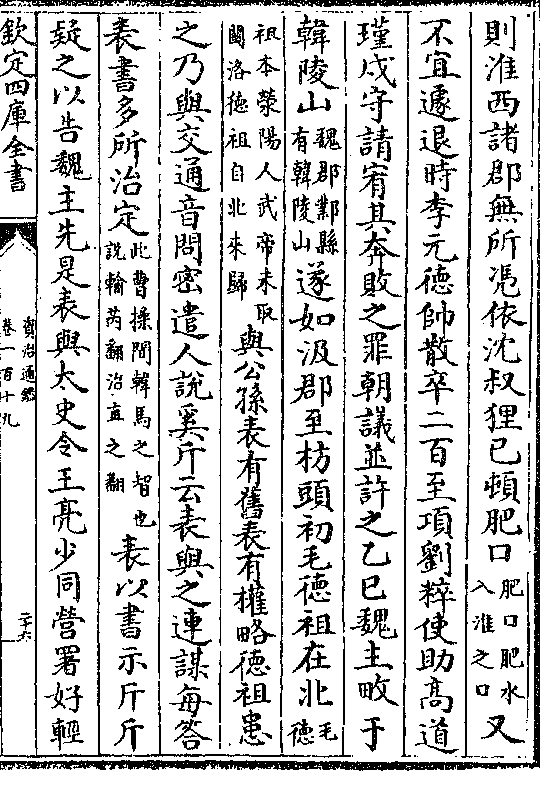 則淮西諸郡無所憑依沈叔狸已頓肥口肥口肥水入淮之口又
不宜遽退時李元德帥散卒二百至項劉粹使助高道
瑾戍守請宥其奔敗之罪朝議並許之乙巳魏主畋于
韓陵山魏郡鄴縣有韓陵山遂如汲郡至枋頭初毛德祖在北毛德
祖本滎陽人武帝未取關洛德祖自北來歸與公孫表有舊表有權略德祖患
之乃與交通音問密遣人說奚斤云表與之連謀每答
表書多所治定此曹操間韓馬之智也說輸芮翻治直之翻表以書示斤斤
疑之以告魏主先是表與太史令王亮少同營署好輕
欽定四庫全書
資治通鑑
卷一百十九
二十六